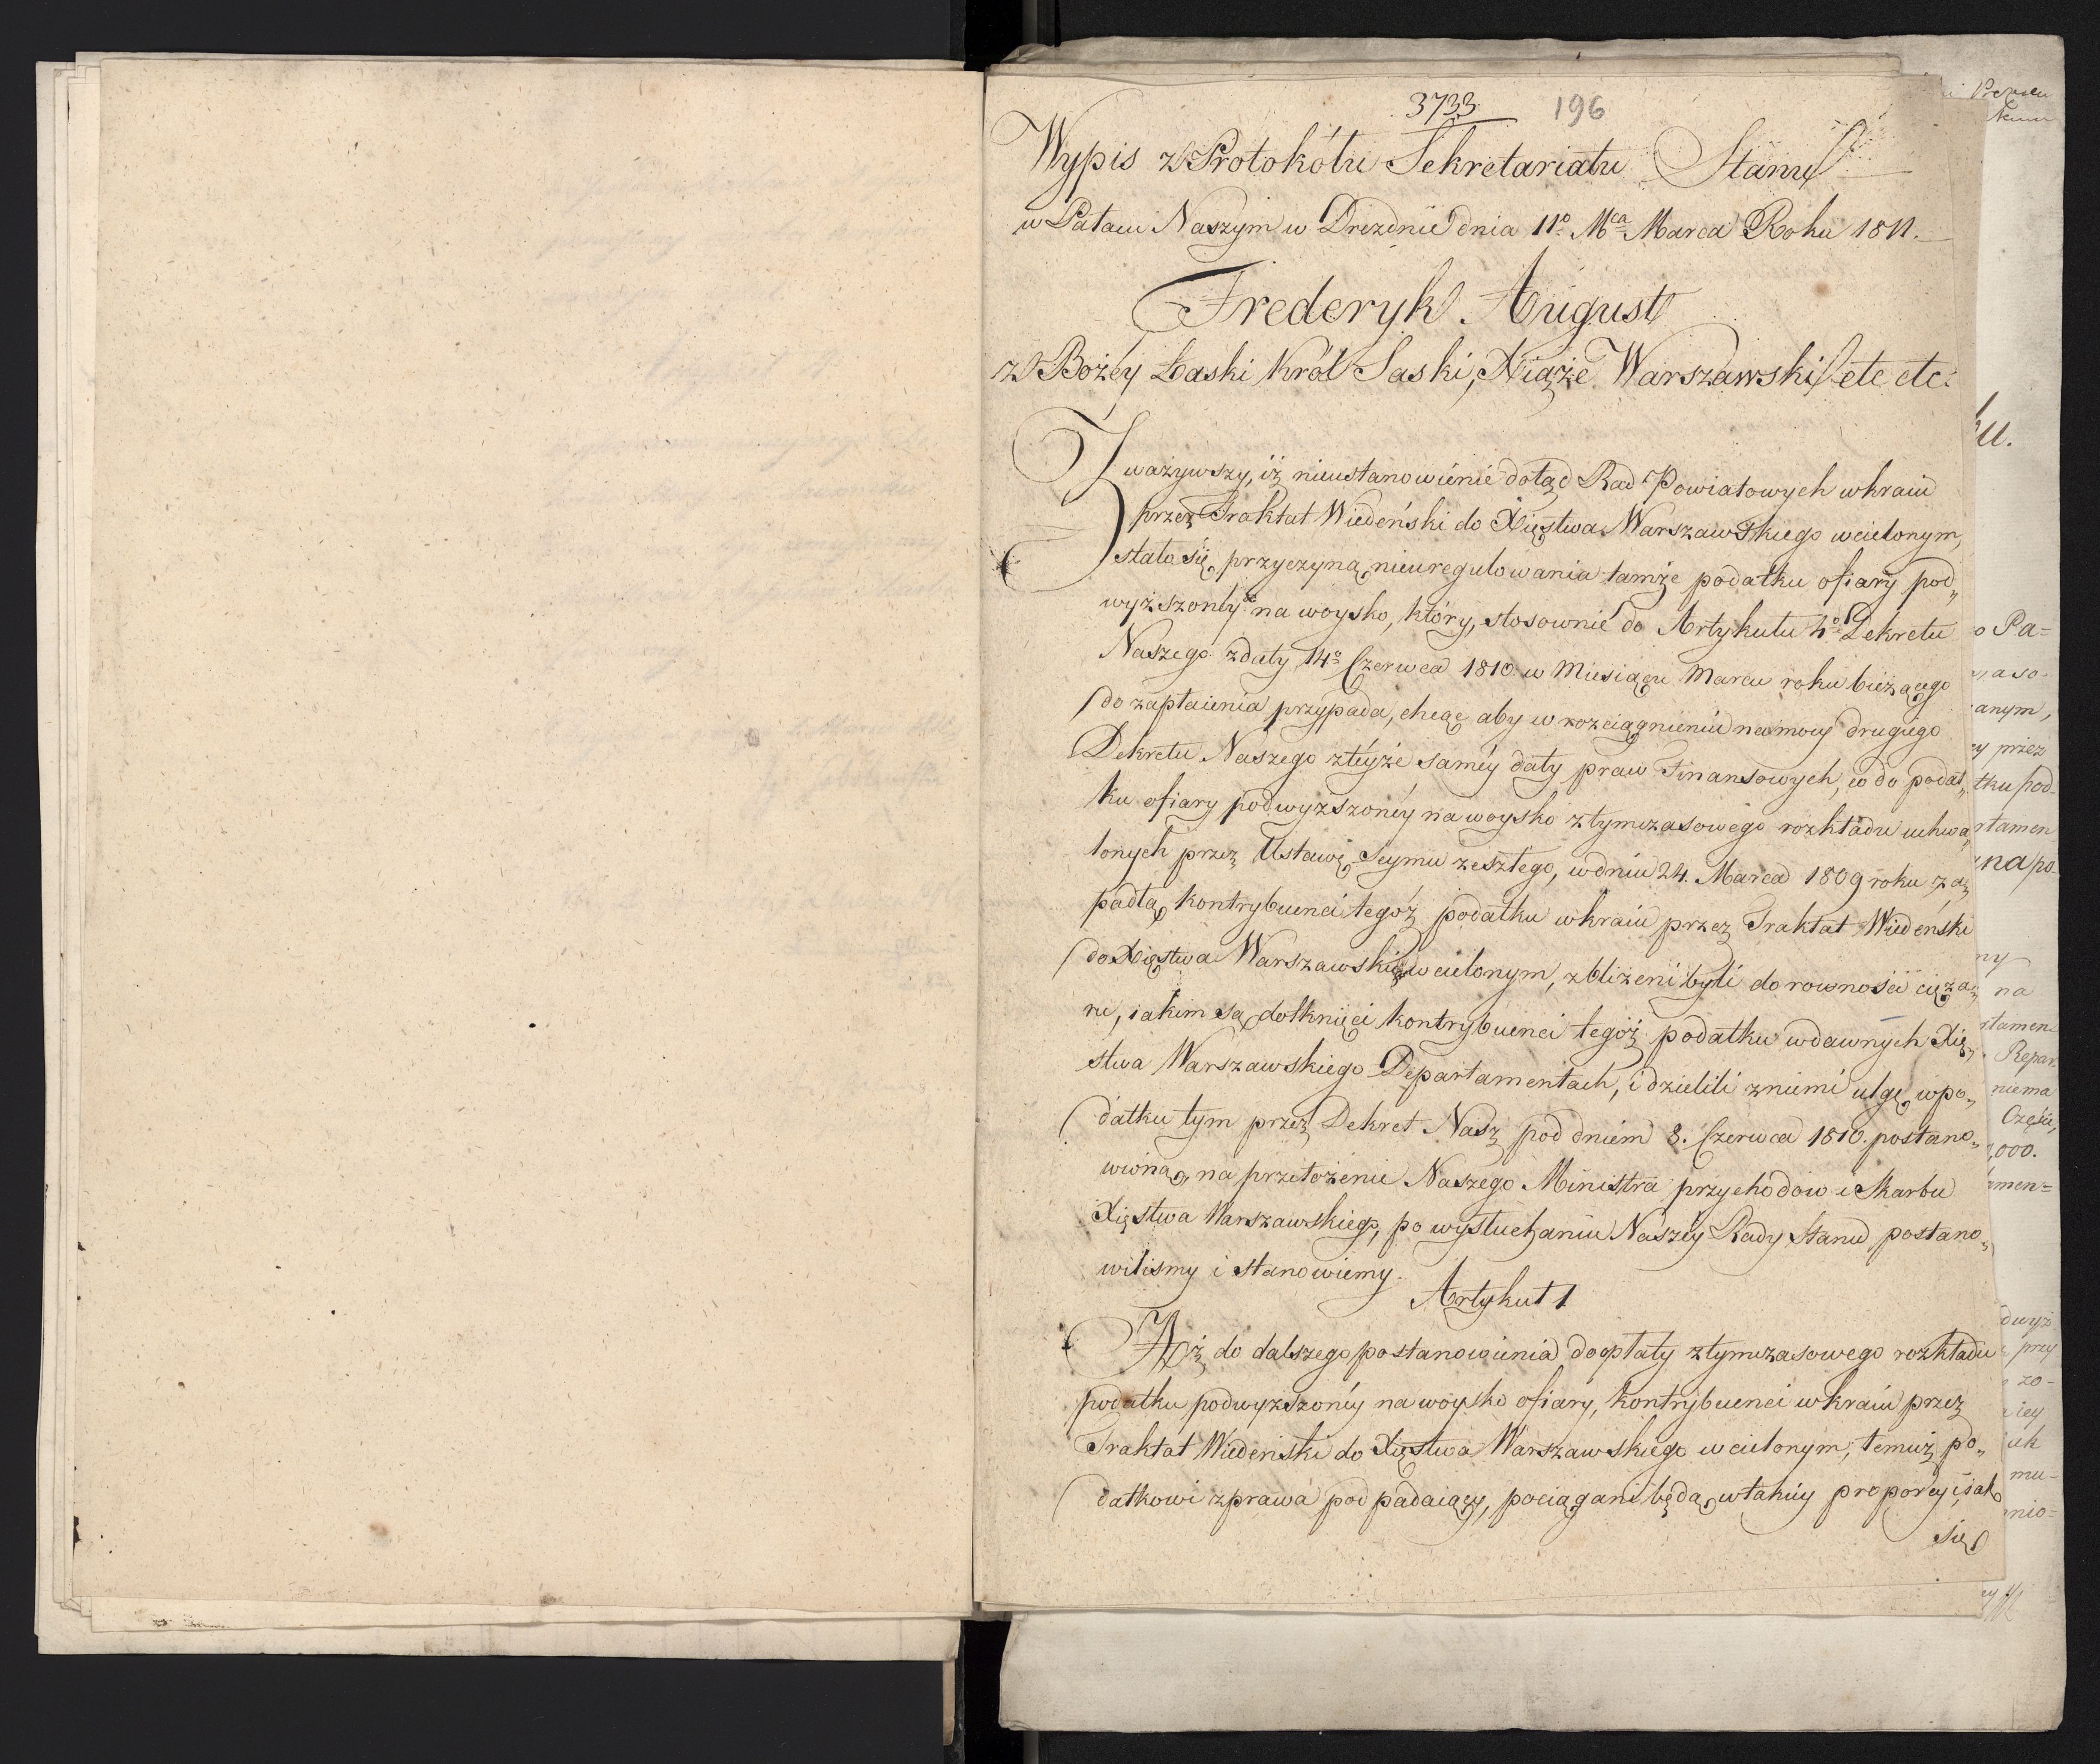 3733. 196
Wypis z Protokółu Sekretariatu Stanu
w Pałacu Naszym w Dreznie dnia 11º Mca Marca Roku 1811.
Frederyk August
z Bożey Łaski Król Saski, Xiąże Warszawski etc etc:
Zważywszy, iż nieustanowienie dotąd Rad Powiatowych w kraiu
przez Traktat Wiedeński do Xięstwa Warszawskiego wcielonym,
stało się przyczyną nieuregulowania tamże podatku ofiary pod„
wyższoney na woysko, który, stosownie do Artykułu 4º Dekretu
Naszego z daty 14º Czerwca 1810 w Miesiącu Marcu roku bieżącego
do zapłacenia przypada, chcąc aby w rozciągnieniu na mocy drugiego
Dekretu Naszego z teyże saméy daty praw Finansowych, co do podat„
ku ofiary podwyższonéy na woysko z tymczasowego rozkładu uchwa„
lonych przez Ustawę Seymu zeszłego, w dniu 24. Marca 1809 roku za„
padłą, kontrybuenci tegoż podatku w kraiu przez Traktat Wiedeński
do Xięstwa Warszawskiego wcielonym, zbliżeni byli do rowności cięża„
ru, iakim są dotknięci kontrybuenci tegoż podatku w dawnych Xię„
stwa Warszawskiego Departamentach, i dzielili z niemi ulgę w po„
datku tym przez Dekret Nasz pod dniem 8. Czerwca 1810. postano„
wioną, na przełożenie Naszego Ministra przychodów i Skarbu
Xięstwa Warszawskiego, po wysłuchaniu Naszéy Rady Stanu postano„
wiliśmy i stanowiemy.
Artykuł 1
Aż do dalszego postanowienia do opłaty z tymczasowego rozkładu
podatku podwyższonéy na woysko ofiary, kontrybuenci w kraiu przez
Traktat Wiedeński do Xięstwa Warszawskiego wcielonym, temuż po„
datkowi z prawa podpadaiący, pociągani będą w takiéy proporcyi, iak
się